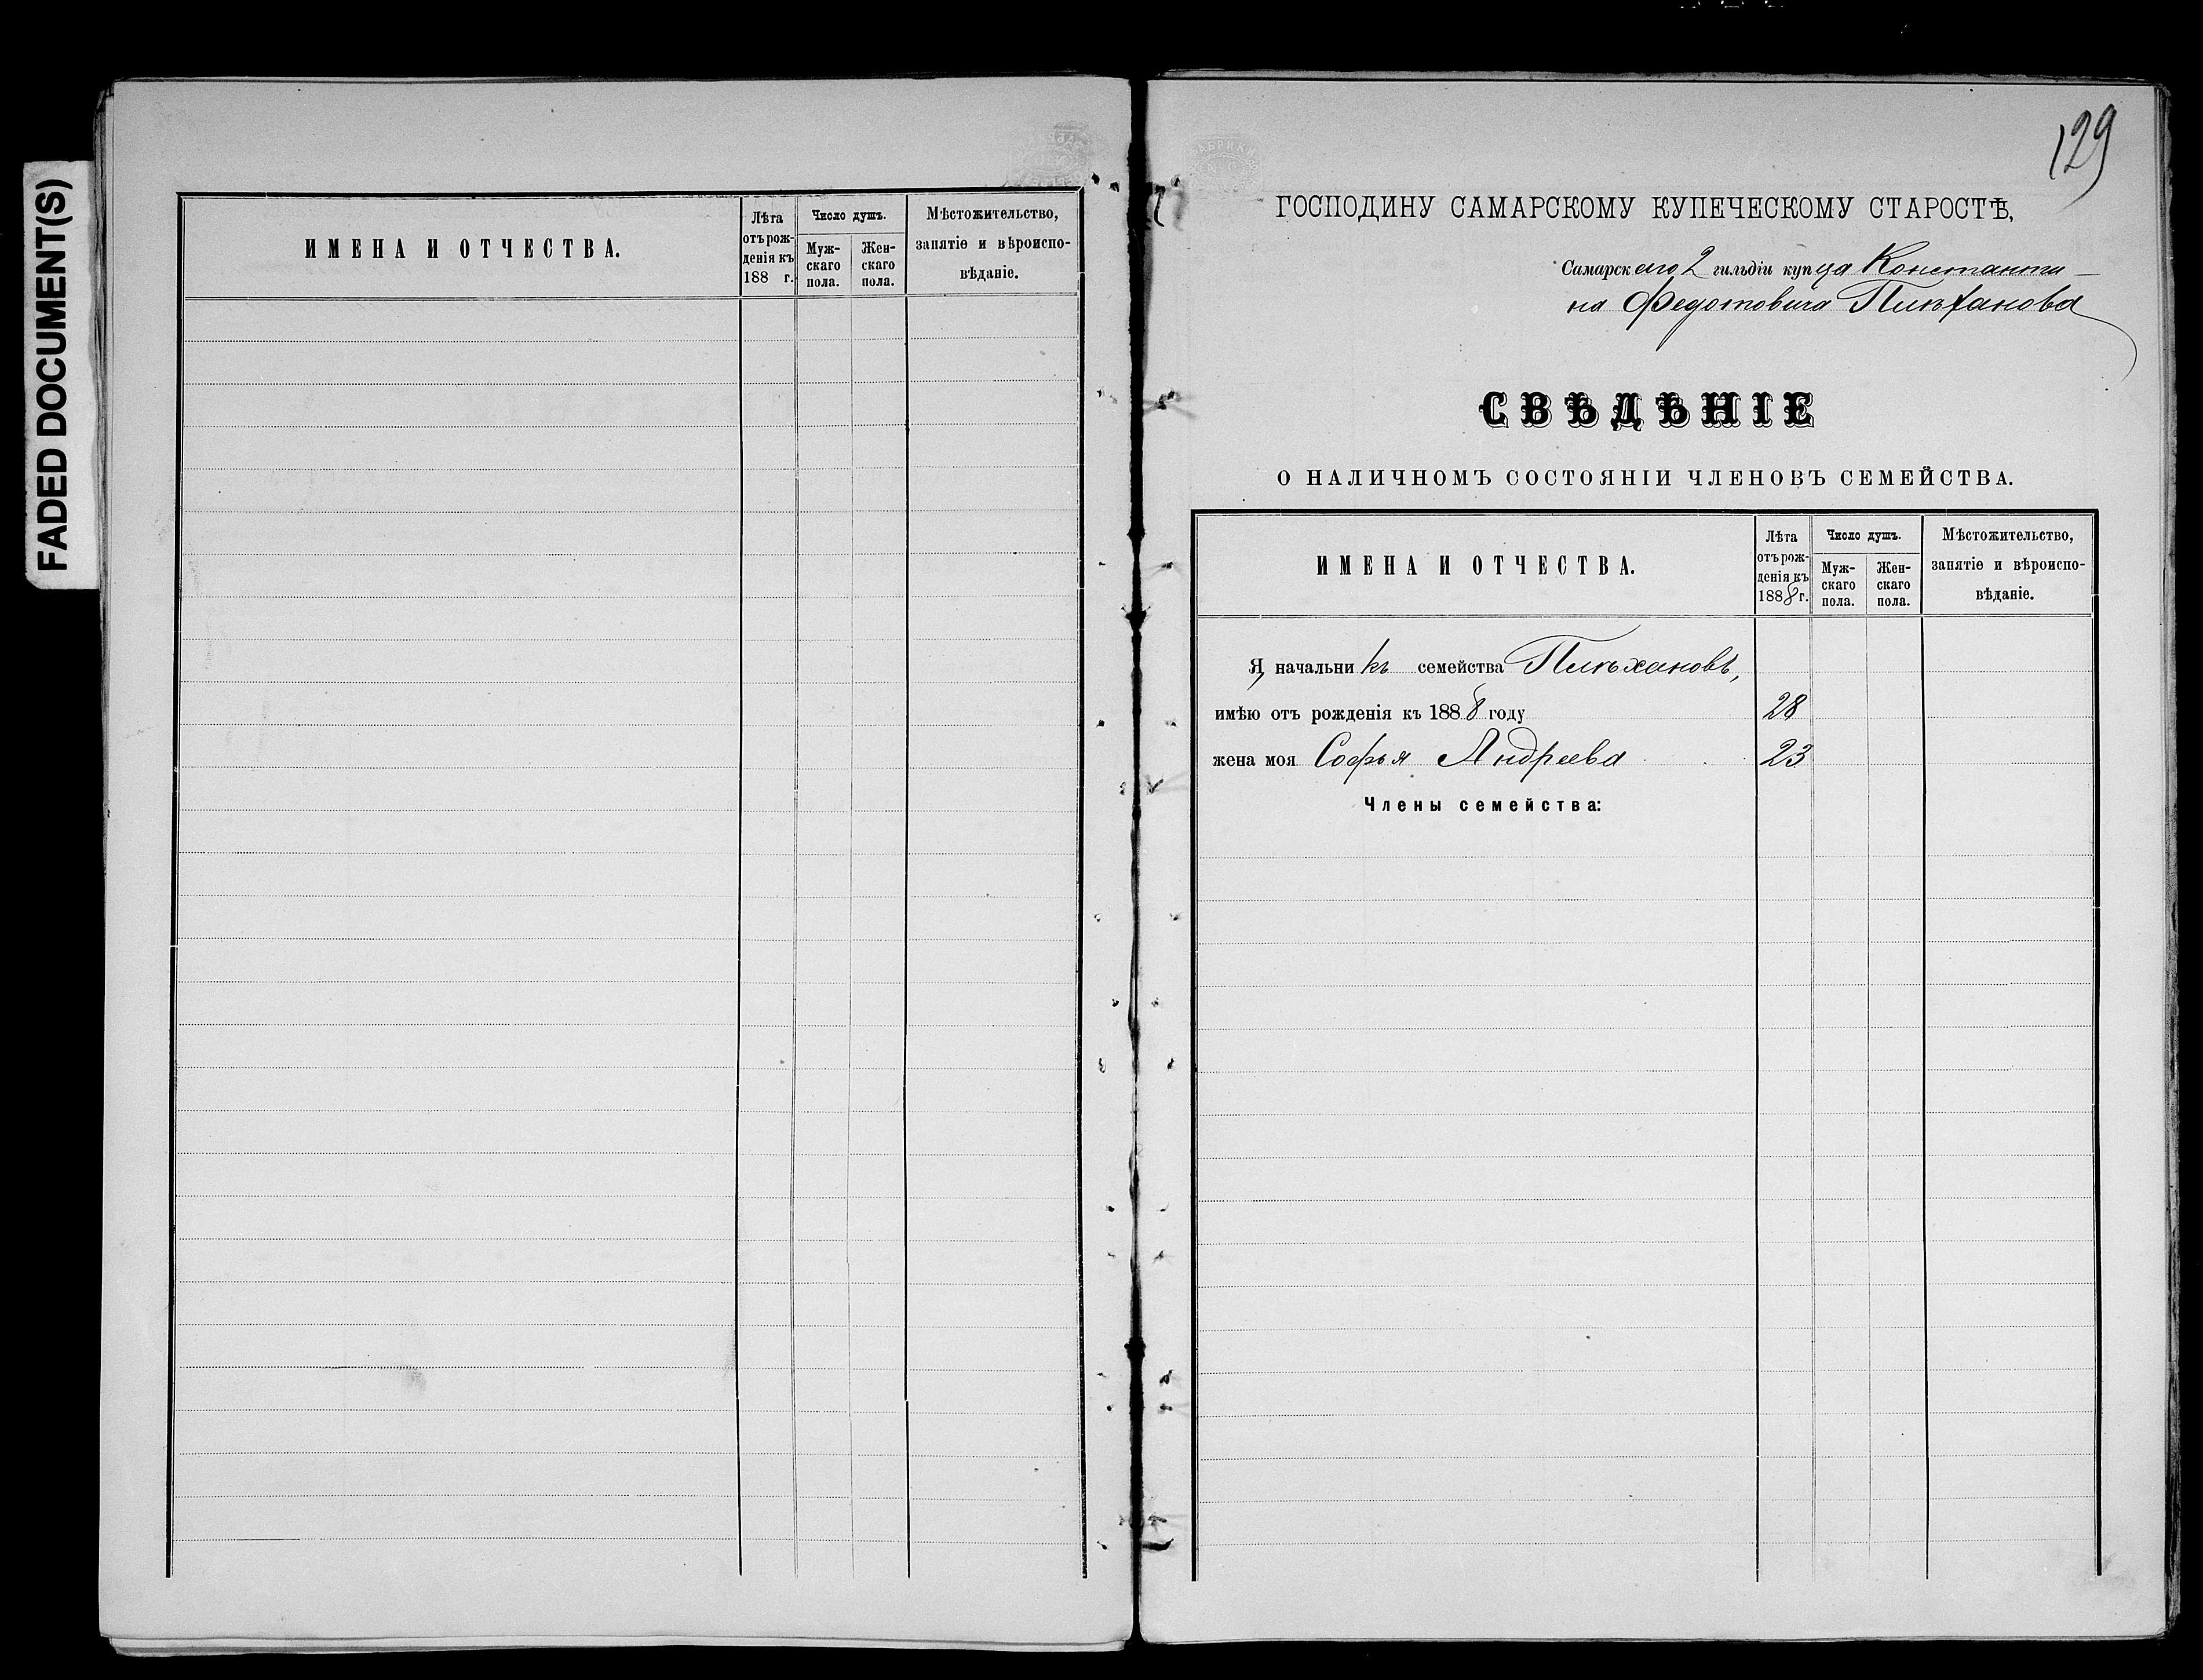 FADED DOCUMENT(S)
ИМЕНА И ОТЧЕСТВА.
Лѣта
отъ рож-
денія къ
188 г.
Число душъ.
Муж-
скаго
пола.
Жен-
скаго
пола.
Мѣстожительство,
занятіе и вѣроиспо-
вѣданіе.
129
ГОСПОДИНУ САМАРСКОМУ КУПЕЧЕСКОМУ СТАРОСТѢ,
Самарскаго 2 гильдіи купца Константи-
на Федотовича Плѣханова
СВѢДѢНІЕ
О НАЛИЧНОМЪ СОСТОЯНІИ ЧЛЕНОВЪ СЕМЕЙСТВА.
ИМЕНА И ОТЧЕСТВА.
Лѣта
отъ рож-
денія къ
1888 г.
Число душъ.
Муж-
скаго
пола.
Жен-
скаго
пола.
Мѣстожительство,
занятіе и вѣроиспо-
вѣданіе.
Я, начальникъ семейства Плѣхановъ,
имѣю отъ рожденія къ 1888 году 28
жена моя Софья Андреева 23
Члены семейства: